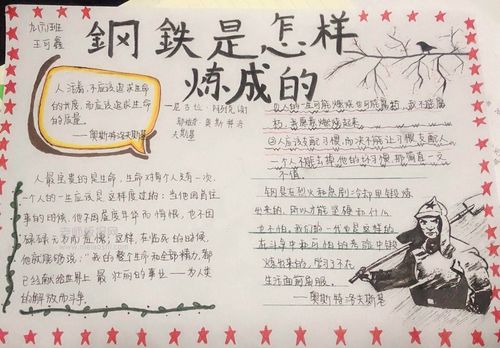 王可鑫
鋼鉄是怎样
炼成的
人活着,不应该追求生命
的长度,而应该追求生命
的质量。
——奥斯特洛夫斯基
人最宝贵的是生命,生命对有个人只有一次,
一个人的一生应该是这样度过的:当他回首往
事的时候,他不因虚度年华而悔恨,也不因
碌碌无为而羞愧;这样,在临死的时候,
他就能够说:"我的整个生命和全部精力,都
已经献给世界上最壮丽的事业——为人类
的解放而斗争。
①人的一生可能燃烧也可能腐朽,我不能腐
朽,我愿意燃烧起来
②人应该支配习惯,而决不能让习惯支配人
一个人不能去掉他的坏习惯,那简直一文
不值。
钢是在烈火和急剧冷却里锻炼
出来的,所以才能坚硬和什么
也不怕,我们的一代也是这样的
在斗争中和可怕的考验中锻
炼出来的,学习了不在
生活面前屈服。
——奥斯特洛夫斯基